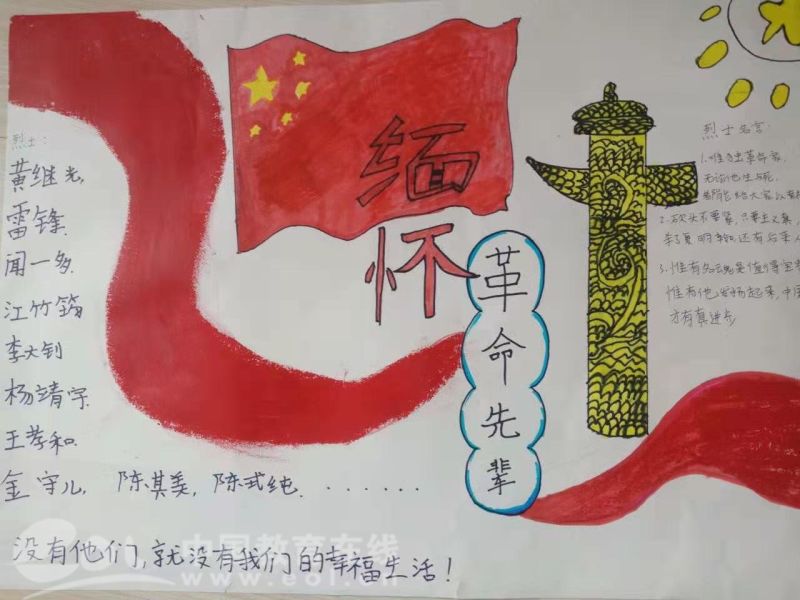 缅怀
革命先辈
烈士:
黄继光,
雷锋
闻一多
江竹筠
李大钊
杨靖宇
王孝和
金守儿, 陈其美, 陈式纯.......
没有他们,就没有我们的幸福生活!
烈士名言:
1.惟有革命家,
无论他生与死
给大家以幸
2.砍头不要紧,只要主义真
明翰还有后来人
3.惟有名魂是值得宝
惟有他发扬起来,中国
才有真进步
中国教育在线
www.eol.cn